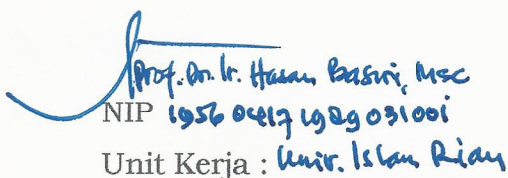 Prof. Dr. Ir. Hasan Basri, Msc
NIP 19560417 198903 1001
Unit Kerja : Univ. Islam Riau